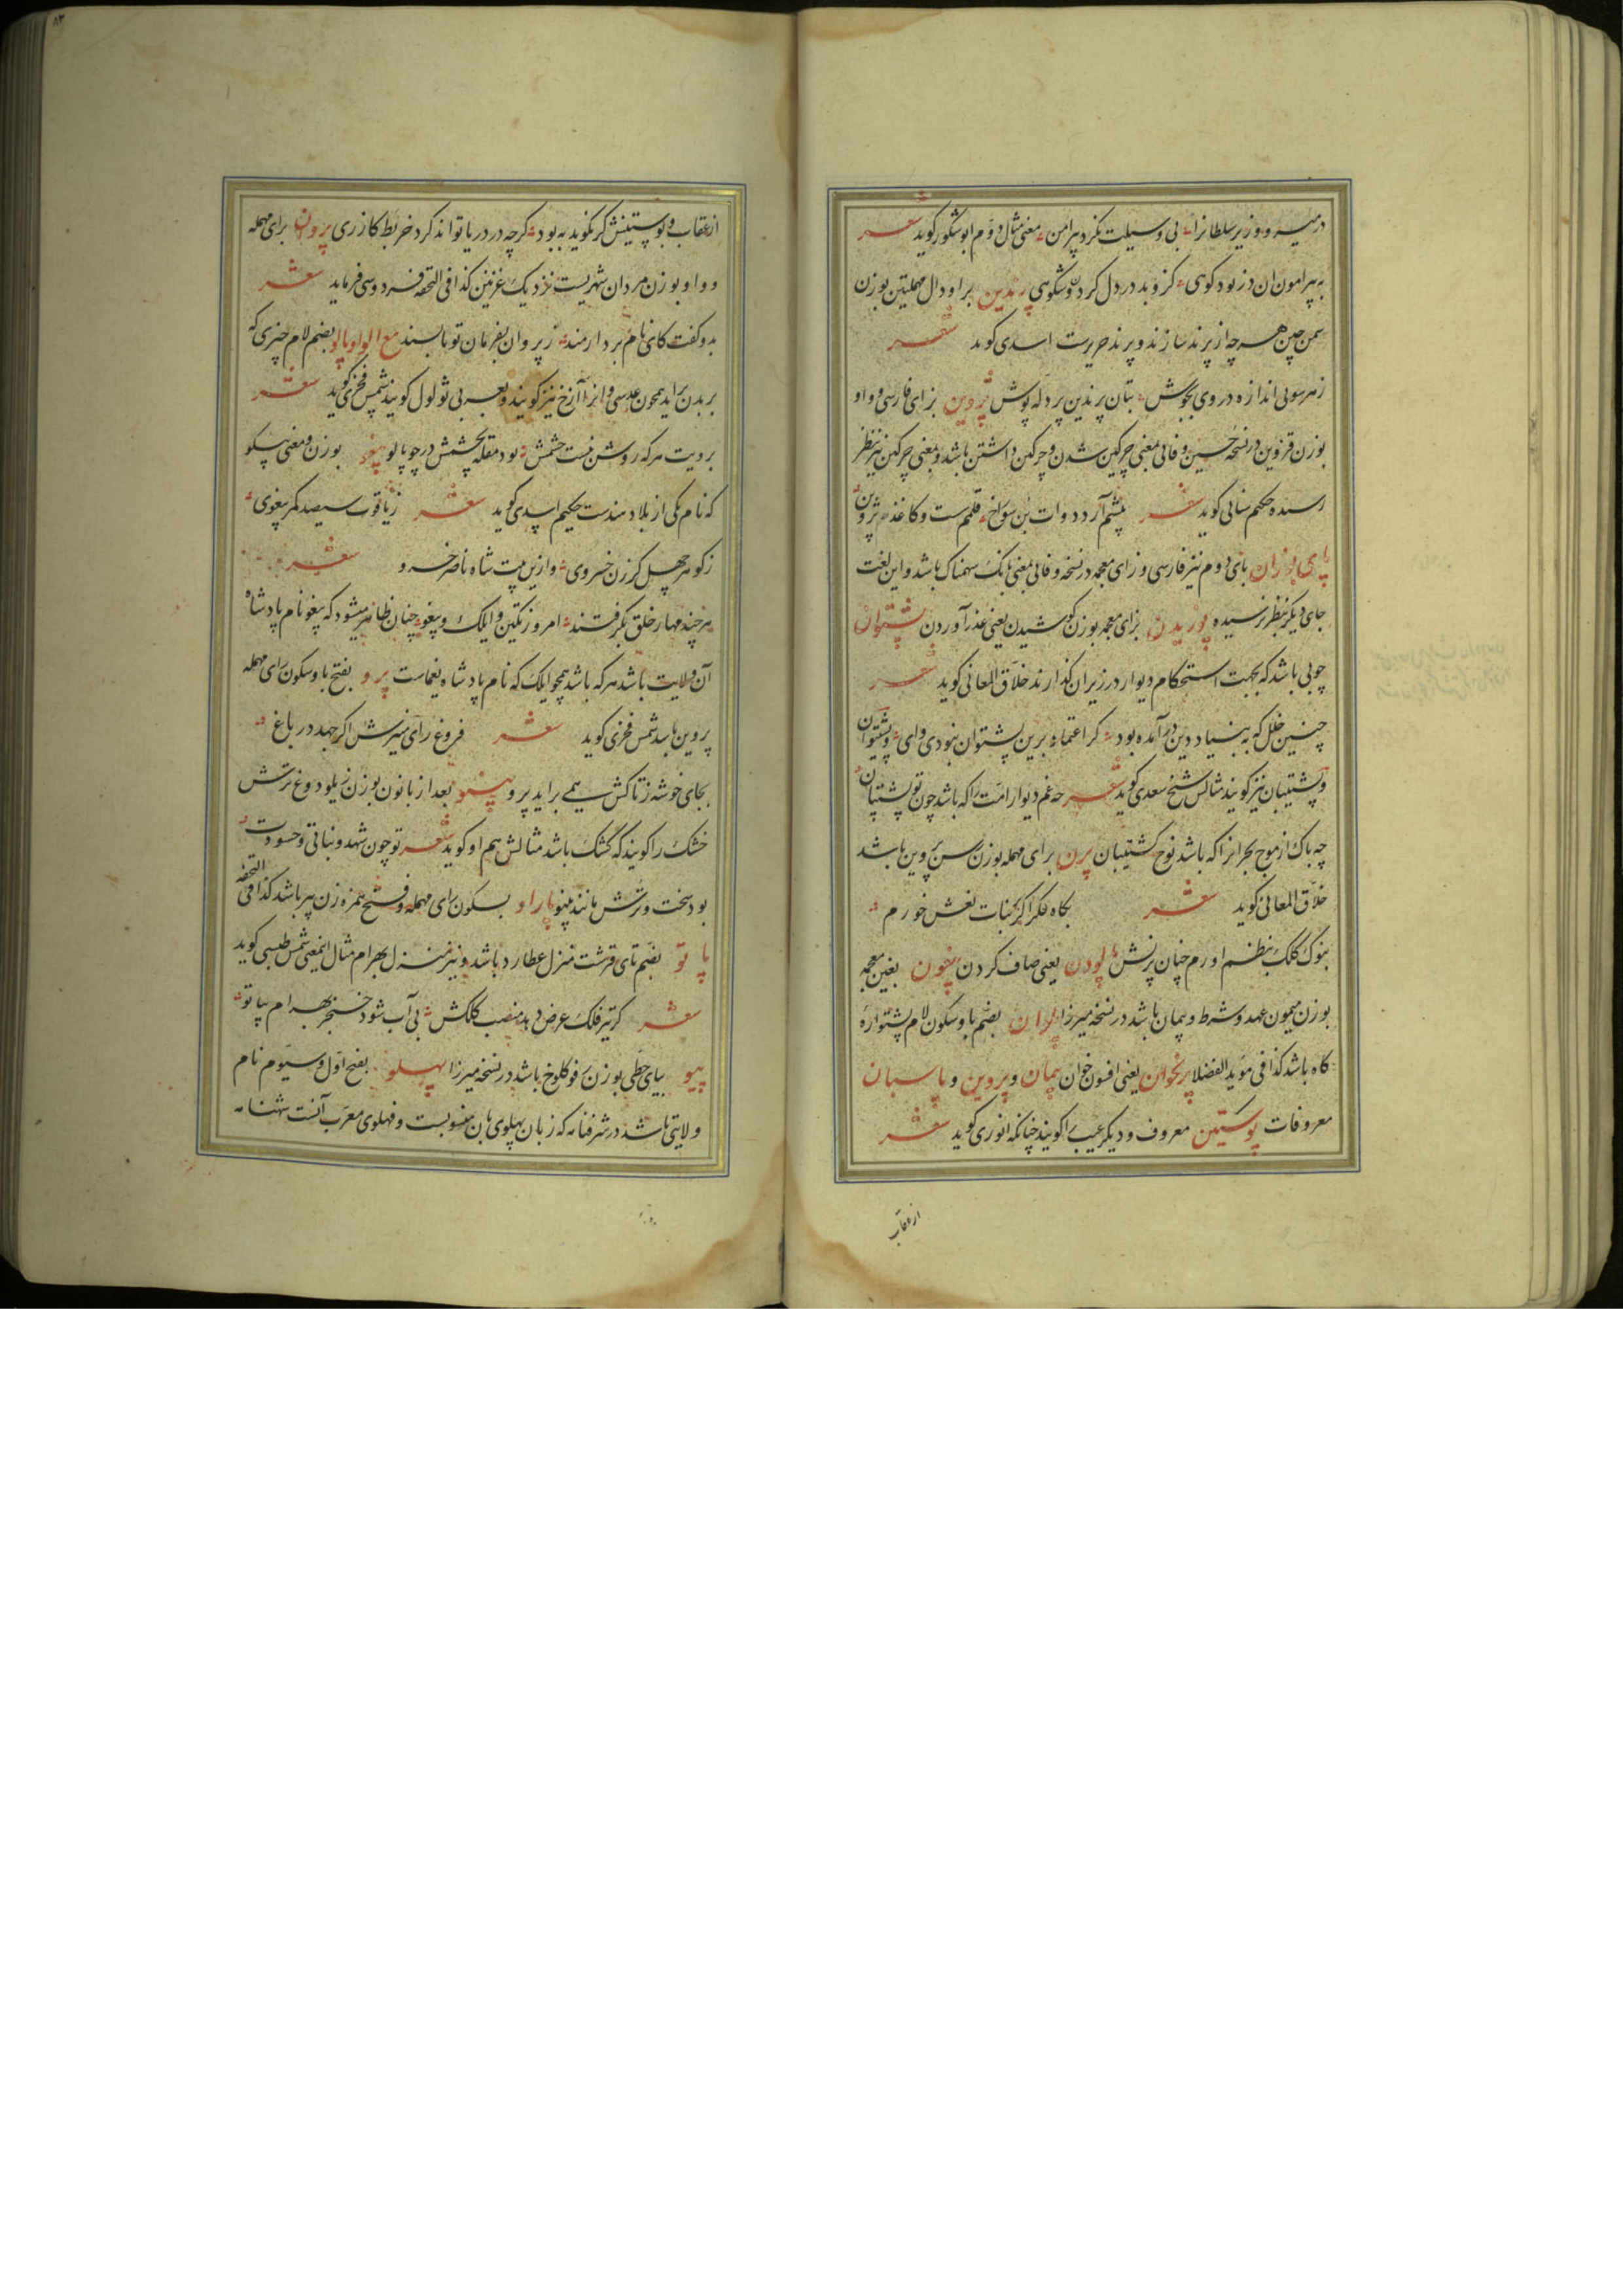 در میسره و وزیر سلطانرا بی وسیلت نگرد پیرامن معنی مثال دوم ابو شکور گوید شعر
به پیرامون آن دز بود کوهی کزو بد در دل گردون شکوهی پرندین برا و دال مهملتین بوزن
سمن چین هر چه از پرند سازند و پرند حریرست اسدی گوید شعر
زهر سوئی اندازه در وی بجوش بتان پرندین بر دله پوش پژوین بزای فارسی و واو
بوزن قزوین در نسخه حسین وفائی بمعنی چرکین شدن و چرکین داشتن باشد و بمعنی چرکین نیز بنظر
رسیده حکیم سنائی گوید شعر پیشم آرد دوات بن سوراخ قلمم سست و کاغذم پژوین
پای پوزان بای دوم نیز فارسی و زای معجمه در نسخه وفائی بمعنی بانگ سهمناک باشد و این لغت
جای دیگر بنظر نرسیده پوزیدن بزای معجمه بوزن کوشیدن یعنی عذر آوردن پشتوان
چوبی باشد که بجهت استحکام دیوار در زیر آن گذارند خلاق المعانی گوید شعر
چنین خلل که به بنیاد دین در آمده بود گر اعتماد برین پشتوان نبودی وای و پشتیوان
و پشتیبان نیز گویند مثالش شیخ سعدی گوید شعر چه غم دیوار امت را که باشد چون تو پشتیبان
چه باک از موج بحر آنرا که باشد نوح کشتیبان پرن برای مهمله بوزن سمن پروین باشد
خلاق المعانی گوید شعر بگاه فکر اگر بنات نعش خورم
بنوک کلک بنظم اورم چنان پرنش پالودن یعنی صاف کردن پیغون بغین معجمه
بوزن میمون عهد و شرط و پیمان باشد در نسخه میرزا پلوان بضم با و سکون لام پشتواره
کاه باشد کذا فی موید الفضلا پریخوان یعنی افسون خوان پیمان و پروین و پاسبان
معروفات پوستین معروف و دیگر عیب را گویند چنانکه انوری گوید شعر
از عقاب
از عقاب و پوستینش گر نگوید به بود گرچه در دریا تواند کرد خربط گازری پروان برای مهمله
و واو بوزن مردان شهریست نزدیک غزنین کذا فی التحفه فردوسی فرماید شعر
بدو گفت کای نام بردار مند ز پروان بفرمان تو تا بسند مع الواو پالو بضم لام چیزی که
بر بدن براید همچون عدسی و انرا آزخ نیز گویند و بعربی ثولول گویند شمس فخری گوید شعر
برویت هر که روشن نیست چشمش بود مقله بچشمش در چو پالو پیغو بوزن و معنی پیسکو
که نام یکی از بلاد هندست حکیم اسدی گوید شعر ز یاقوت سیصد کمر پیغوی
ز گوهر چهل گرزن خسروی و از این بیت شاه ناصر خسرو شعر
هر چند مهار خلق بگرفتند امروز تکین و ایلک و پیغو چنان ظاهر میشود که پیغو نام پادشاه
آن ولایت باشد هر که باشد همچو ایلک که نام پادشاه یغماست پرو بفتح با و سکون رای مهمله
پروین باشد شمس فخری گوید شعر فروغ رای منیرش اگر جهد در باغ
بجای خوشه ز تاکش همی براید پرو پینو بعد از با نون بوزن زیلو دوغ ترش
خشک را گویند که کشک باشد مثالش هم او گوید شعر تو چون شهد و نباتی و حسودت
بود سخت و ترش مانند پینو پاراو بسکون رای مهمله و فتح همزه زن پیر باشد کذا فی التحفه
پاتو بضم تای قرشت منزل عطارد باشد و نیز منزل بهرام مثال این معنی شمس طبسی گوید
شعر گر تیر فلک عرض دهد منصب کلکش بی آب شود خنجر بهرام بپاتو
پیو بیای حطی بوزن عفو کلوخ باشد در نسخه میرزا پهلو بفتح اول و سیوم نام
ولایتی باشد در شرفنامه که زبان پهلوی بآن منسوبست و فهلوی معرب آنست شهنامه